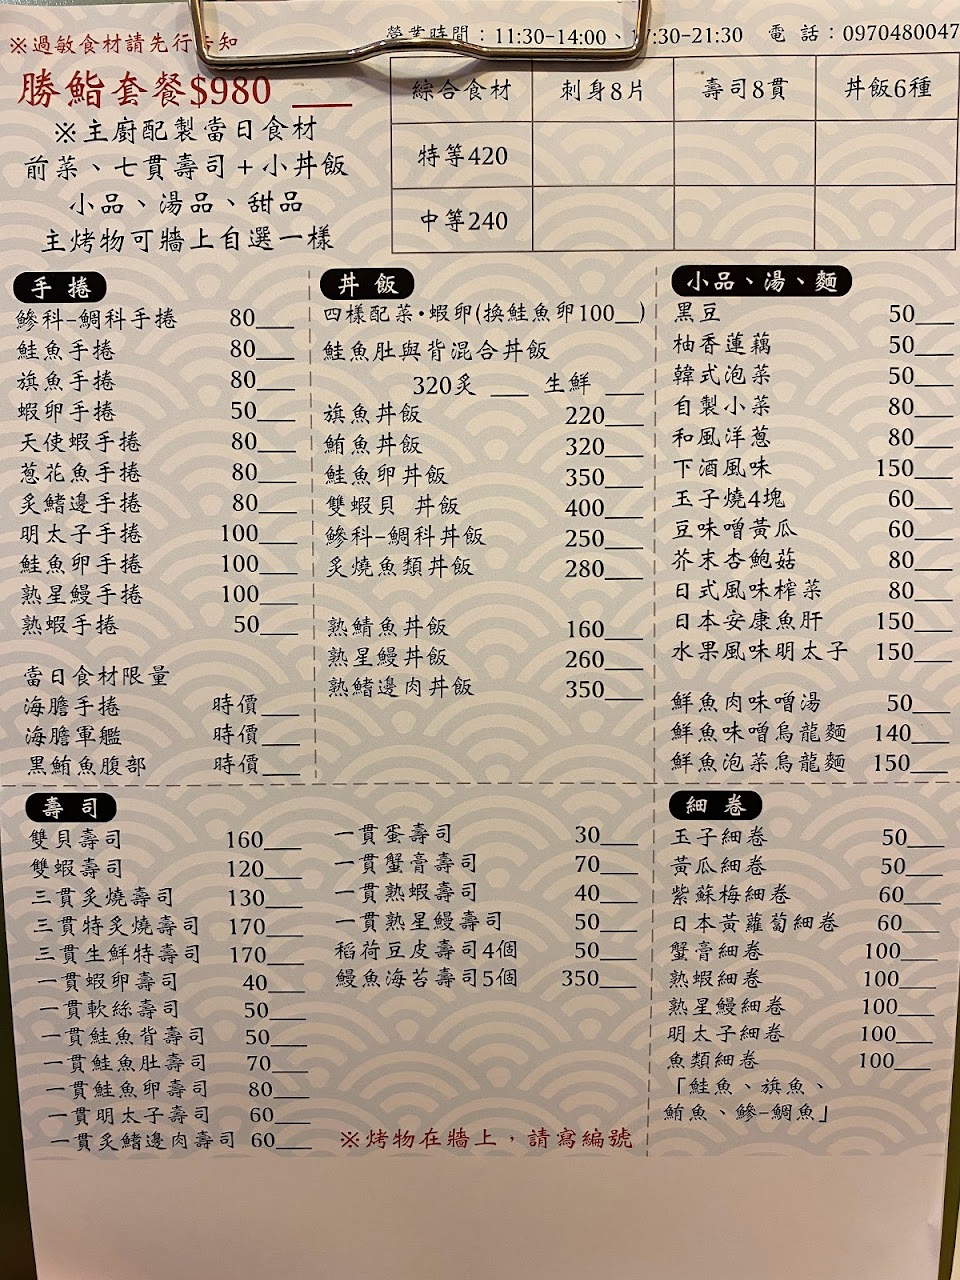 ※過敏食材請先行告知
營業時間：11:30-14:00、17:30-21:30 電話：0970480047
勝鮨套餐$980 ___
※主廚配製當日食材
前菜、七貫壽司+小丼飯
小品、湯品、甜品
主烤物可牆上自選一樣
綜合食材 刺身8片 壽司8貫 丼飯6種
特等420
中等240
手捲
鰺科-鯛科手捲 80___
鮭魚手捲 80___
旗魚手捲 80___
蝦卵手捲 50___
天使蝦手捲 80___
蔥花魚手捲 80___
炙鰭邊手捲 80___
明太子手捲 100___
鮭魚卵手捲 100___
熟星鰻手捲 100___
熟蝦手捲 50___
當日食材限量
海膽手捲 時價___
海膽軍艦 時價___
黑鮪魚腹部 時價___
丼飯
四樣配菜·蝦卵(換鮭魚卵100__)
鮭魚肚與背混合丼飯
320炙 ___ 生鮮 ___
旗魚丼飯 220___
鮪魚丼飯 320___
鮭魚卵丼飯 350___
雙蝦貝 丼飯 400___
鰺科-鯛科丼飯 250___
炙燒魚類丼飯 280___
熟鯖魚丼飯 160___
熟星鰻丼飯 260___
熟鰭邊肉丼飯 350___
小品、湯、麵
黑豆 50___
柚香蓮藕 50___
韓式泡菜 50___
自製小菜 80___
和風洋蔥 80___
下酒風味 150___
玉子燒4塊 60___
豆味噌黃瓜 60___
芥末杏鮑菇 80___
日式風味榨菜 80___
日本安康魚肝 150___
水果風味明太子 150___
鮮魚肉味噌湯 50___
鮮魚味噌烏龍麵 140___
鮮魚泡菜烏龍麵 150___
壽司
雙貝壽司 160___
雙蝦壽司 120___
三貫炙燒壽司 130___
三貫特炙燒壽司 170___
三貫生鮮特壽司 170___
一貫蝦卵壽司 40___
一貫軟絲壽司 50___
一貫鮭魚背壽司 50___
一貫鮭魚肚壽司 70___
一貫鮭魚卵壽司 80___
一貫明太子壽司 60___
一貫炙鰭邊肉壽司 60___
一貫蛋壽司 30___
一貫蟹膏壽司 70___
一貫熟蝦壽司 40___
一貫熟星鰻壽司 50___
稻荷豆皮壽司4個 50___
鰻魚海苔壽司5個 350___
※烤物在牆上，請寫編號
細卷
玉子細卷 50___
黃瓜細卷 50___
紫蘇梅細卷 60___
日本黃蘿蔔細卷 60___
蟹膏細卷 100___
熟蝦細卷 100___
熟星鰻細卷 100___
明太子細卷 100___
魚類細卷 100___
「鮭魚、旗魚、
鮪魚、鰺-鯛魚」